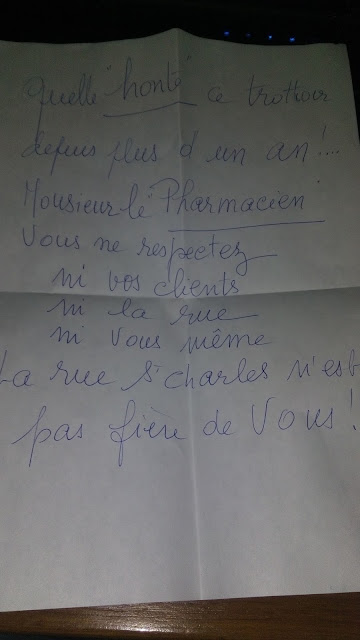 Quelle "honte" ce trottoir
depuis plus d'un an !...
Monsieur le "Pharmacien"
Vous ne respectez
ni vos clients
ni la rue
ni vous même
La rue St charles n'est
pas fière de Vous !